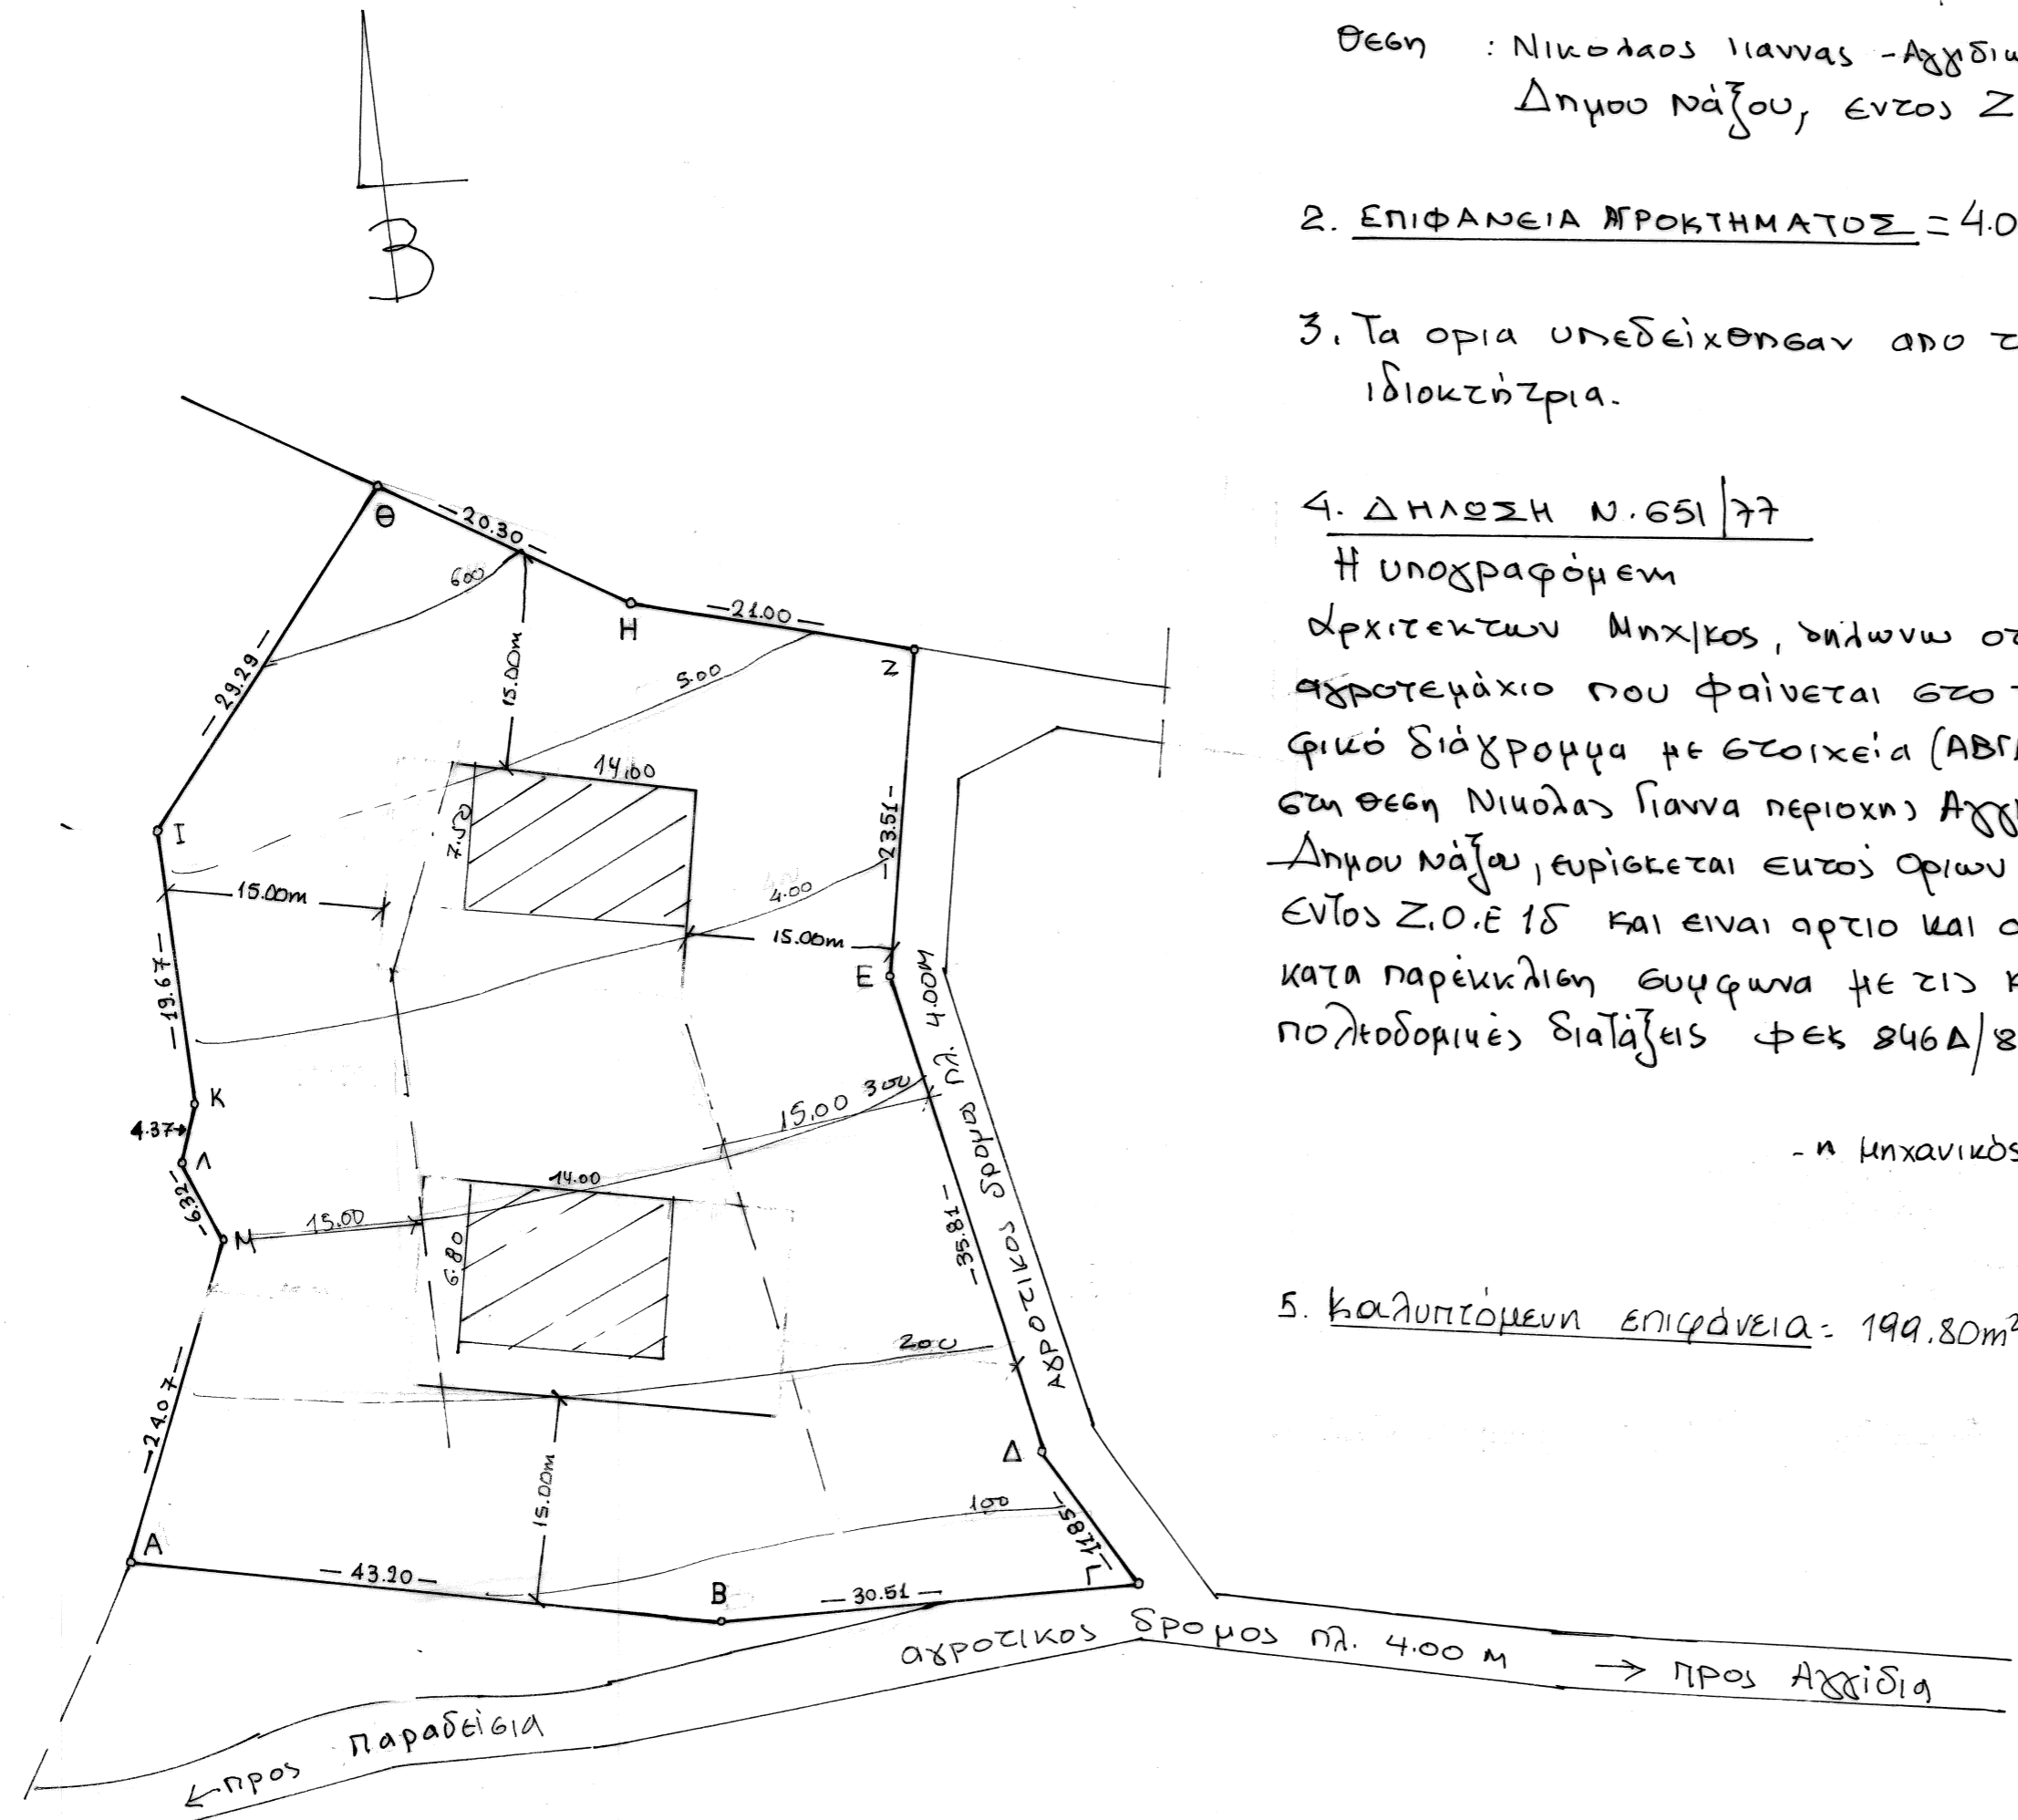 Β
Θεση : Νικολαος Γιαννας - Αγγιδι
Δημου Νάξου, εντος Ζ
2. ΕΠΙΦΑΝΕΙΑ ΑΓΡΟΚΤΗΜΑΤΟΣ = 4.0
3. Τα ορια υπεδείχθησαν απο τ
ιδιοκτήτρια.
4. ΔΗΛΩΣΗ Ν. 651/77
Η υπογραφόμενη
Αρχιτεκτων Μηχ/κος, δηλωνω οτ
αγροτεμάχιο που φαίνεται στο τ
φικό διάγραμμα με στοιχεία (ΑΒΓΔ
στη θεση Νικολας Γιαννα περιοχης Αγγ
Δημου Νάξου, ευρίσκεται εκτος οριων
εντος Ζ.Ο.Ε 1δ και ειναι αρτιο και ο
κατα παρέκκλιση συμφωνα με τις κ
πολεοδομικές διατάξεις ΦΕΚ 846Δ/8
- η μηχανικός
5. Καλυπτόμενη επιφάνεια = 199.80m²
Θ
20.30
600
Η
21.00
Ζ
29.29
15.00m
5.00
14.00
7.50
23.51
Ι
15.00m
4.00
15.00m
Ε
19.67
Κ
4.37
Λ
6.32
Μ
15.00
300
15.00
14.00
6.80
35.81
αγροτικος δρομος πλ. 4.00Μ
24.07
200
Δ
15.00m
100
11.85
Α
43.20
Β
30.51
Γ
αγροτικος δρομος πλ. 4.00 Μ → προς Αγγίδια
← προς Παραδείσια